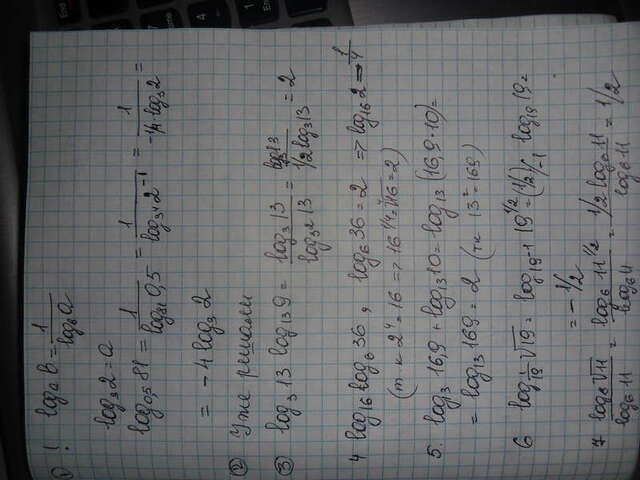 ① ! log_a b = 1/log_b a
log_3 2 = a
log_0,5 81 = 1/log_81 0,5 = 1/log_3⁴ 2⁻¹ = 1/(-1/4·log_3 2) =
= -4 log_3 2
② Уже решали
③ log_3 13 log_13 9 = log_3 13/log_3² 13 = log_3 13/(1/2 log_3 13) = 2
4 log_16 log_6 36, log_6 36 = 2 => log_16 2 = 1/4
(т к 2⁴ = 16 => 16^1/4 = ⁴√16 = 2)
5. log_3 16,9 + log_13 10 = log_13 (16,9·10) =
= log_13 169 = 2 (тк 13² = 169)
6 log_1/19 √19 = log_19⁻¹ 19^1/2 = (1/2)/-1 log_19 19 =
= -1/2
7 log_6 √11/log_6 11 = log_6 11^1/2/log_6 11 = 1/2 log_6 11/log_6 11 = 1/2
End
4
1
End